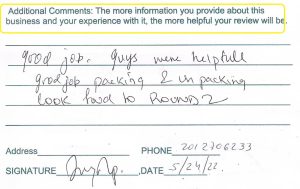 Additional Comments: The more information you provide about this
business and your experience with it, the more helpful your review will be.
good job. guys were helpfull
good job packing & unpacking
look foud to Round 2
Address
PHONE 2012306233
SIGNATURE DATE 5/24/22.